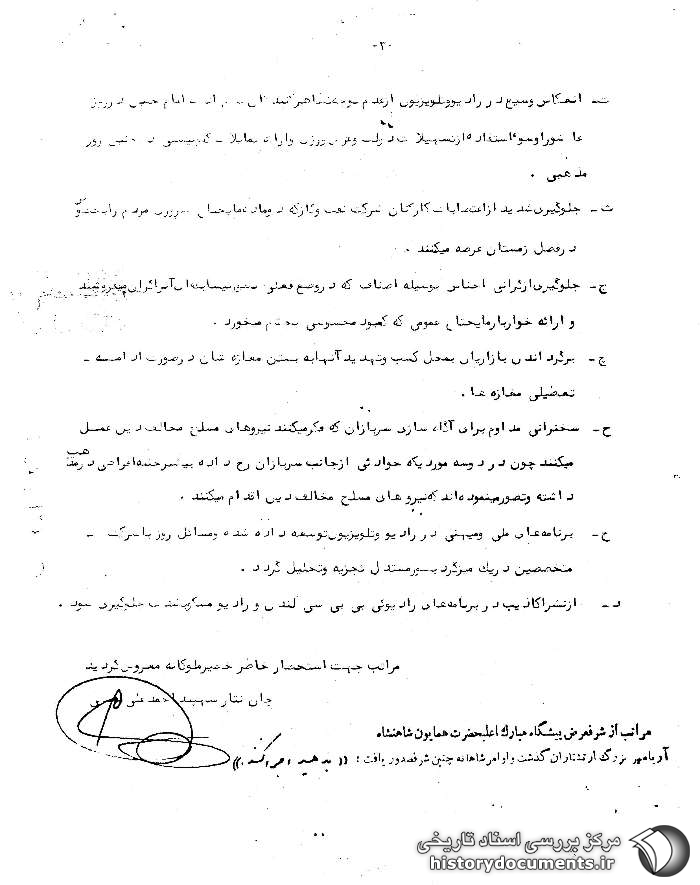 -۳-
ت- انعکاس وسیع در رادیو و تلویزیون از امام حسین در روز
عاشورا و سوء استفاده از تسهیلات در روز
مذهبی .
ث- جلوگیری شدید از اعتصابات کارکنان شرکت نفت وگاز که در مردم را
در فصل زمستان عرضه میکنند .
ج- جلوگیری از گرانی اجناس بوسیله اصناف که در وضع فعلی
و ارائه خواربار مایحتاج عمومی که کمبود محسوسی بچشم میخورد .
چ- برگرداندن بازاریان بمحل کسب وتهدید آنها به بستن مغازه شان در صورت ادامه -
تعطیلی مغازه ها .
ح- سخنرانی مداوم برای آگاه سازی سربازان که فکر میکنند نیروهای مسلح مخالف دین عمل
میکنند چون در دوسه مورد یکه حوادثی ازجانب سربازان رخ داده
داشته وتصور مینموده اند که نیروهای مسلح مخالف دین اقدام میکنند .
خ- برنامه‌های ملی ومیهنی در رادیو وتلویزیون توسعه داده شده ومسائل روز با شرکت -
متخصصین در یک میزگرد بطور مستدل تجزیه وتحلیل گردد .
د- ازنشر اکاذیب در برنامه‌های رادیوئی بی بی سی لندن و رادیو مسکو جلوگیری شود .
مراتب جهت استحضار خاطر خطیر ملوکانه معروض گردید
جان نثار سپهبد احمد علی
مراتب از شرفعرض پیشگاه مبارك اعلیحضرت همایون شاهنشاه
آریامهر بزرگ ارتشتاران گذشت و اوامر شاهانه چنین شرفصدور یافت : (( بدهید اجرا کنند . ))
مرکز بررسی اسناد تاریخی
historydocuments.ir